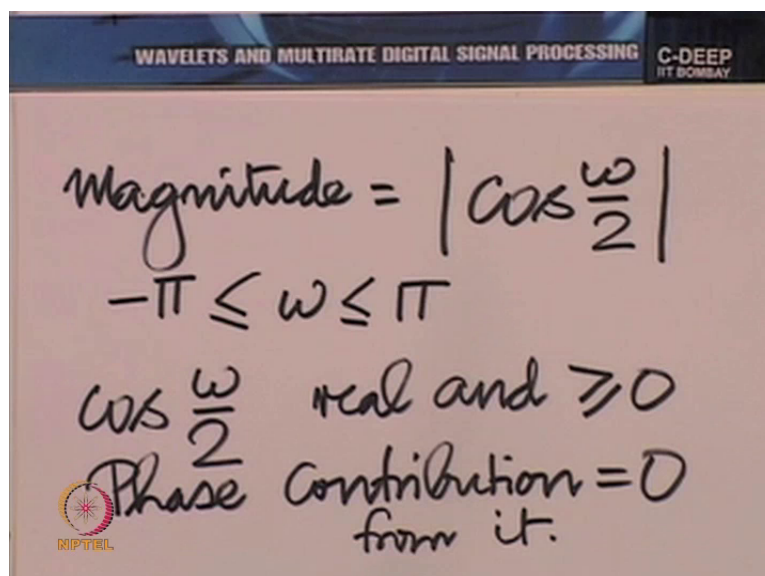 WAVELETS AND MULTIRATE DIGITAL SIGNAL PROCESSING
C-DEEP
IIT BOMBAY
Magnitude = | cos ω/2 |
-π ≤ ω ≤ π
cos ω/2 real and ≥ 0
Phase Contribution = 0
from it.
NPTEL